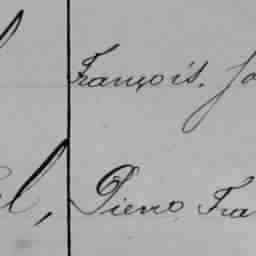 François. Jo
el, Pierro Fra